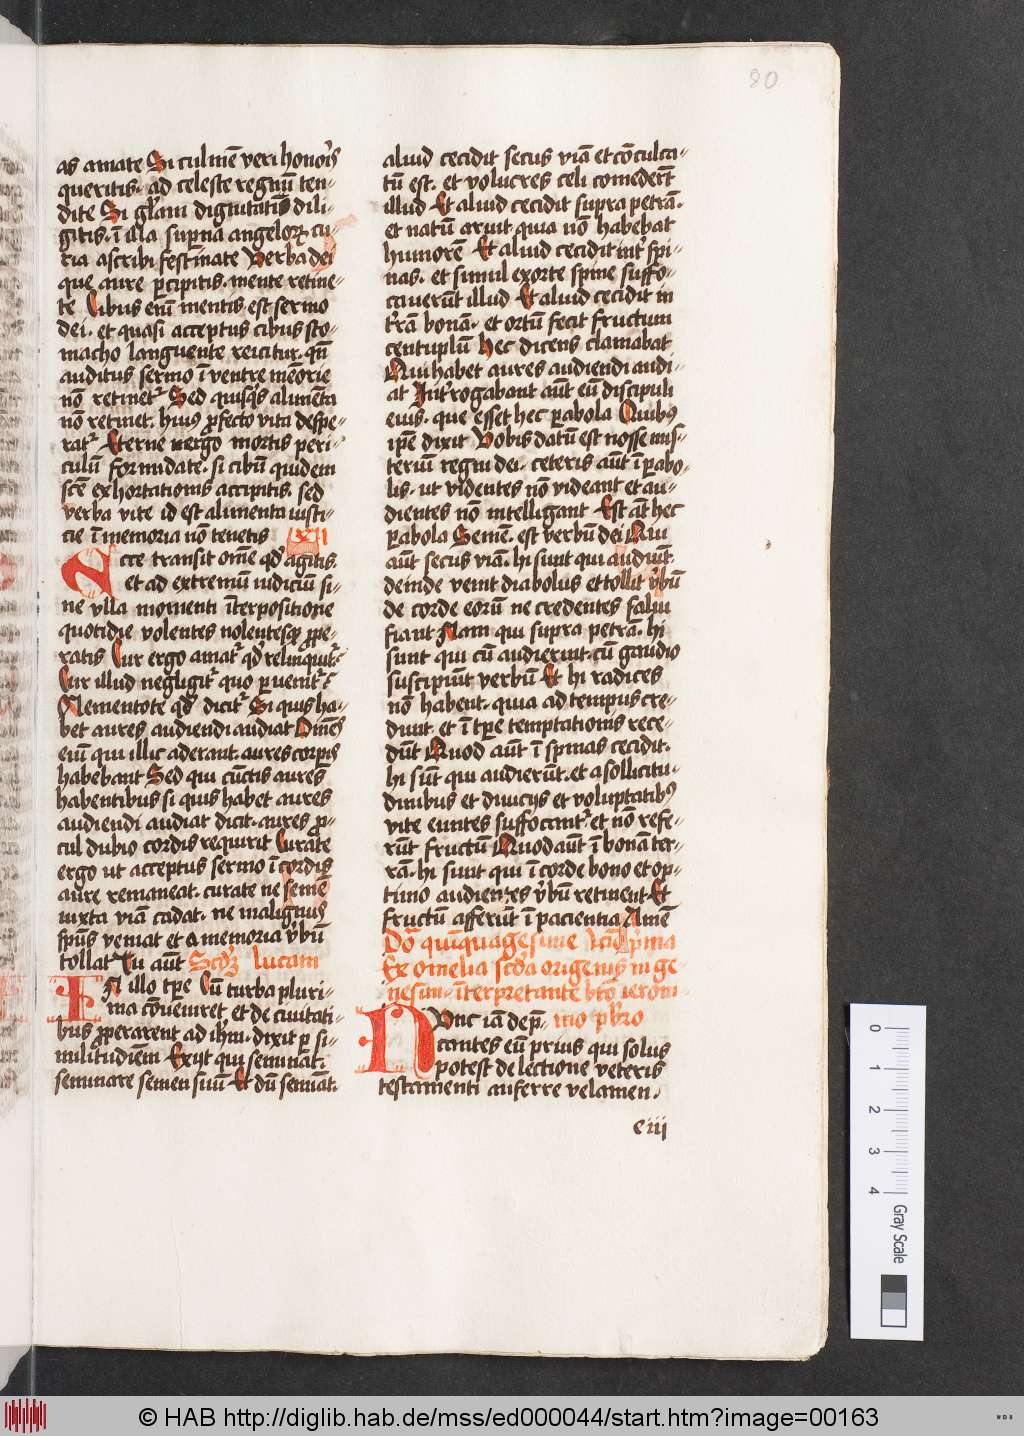 80
as amate Si culmē veri honoris
queritis. ad celeste regnū ten-
dite Si glam dignitatis dili-
gitis. ī illa supna angeloꝝ cu-
ria ascribi festinate Verba dei
que aure pcipitis. mente retine-
te Cibus em̄ mentis est sermo
dei. et quasi acceptus cibus sto-
macho languente reicitur. qn̄
auditus sermo ī ventre mēorie
nō retinet Sed quisqs alimēta
nō retinet. huius pfecto vita despe-
rat Eterne ergo mortis peri-
culū formidate. si cibū quidem
scē exhortationis accipitis. sed
verba vite id est alimenta iusti-
cie ī memoria nō tenetis
cce transit ōme qd agitis.
et ad extremū iudiciū si-
ne vlla momenti īterpositione
quotidie volentes nolentesq prope-
ratis Cur ergo amat qd relinquit
Cur illud negligit quo puenit
Mementote qd dicit Si quis ha-
bet aures audiendi audiat Omēs
em̄ qui illic aderant. aures corpis
habebant Sed qui cūctis aures
habentibus si quis habet aures
audiendi audiat dicit. aures p-
cul dubio cordis requirit Curate
ergo ut acceptus sermo ī cordis
aure remaneat. curate ne semē
iuxta viā cadat. ne malignus
spūs veniat et a memoria vbū
tollat Tu aūt Scdꝫ lucam
IN illo tpe Cū turba pluri-
ma cōveniret et de civitati-
bus pperarent ad ihm. dixit p si-
militudiēm Exijt qui seminat.
seminare semen suū Et dū semiat.
aliud cecidit secus viā et cōculca-
tū est. et volucres celi comederūt
illud Et aliud cecidit supra petrā.
et natū aruit quia nō habebat
humorē Et aliud cecidit int spi-
nas. et simul exorte spine suffo-
caverūt illud Et aliud cecidit in
trā bonā. et ortū fecit fructum
centuplū Hec dicens clamabat
Qui habet aures audiendi audi-
at Introgabant aūt eū discipuli
eius. que esset hec pabola Quibus
ipē dixit Vobis datū est nosse mis-
teriū regni dei. ceteris aūt ī pabo-
lis. ut videntes nō videant et au-
dientes nō intelligant Est aūt hec
pabola Semē. est verbū dei Qui
aūt secus viā. hi sunt qui audiūt.
deinde venit diabolus et tollit vbū
de corde eorū ne credentes salui
fiant Nam qui supra petrā. hi
sunt qui cū audierint. cū gaudio
suscipiūt verbū Et hi radices
nō habent. quia ad tempus cre-
dunt. et ī tpe temptationis rece-
dūt Quod aūt ī spinas cecidit.
hi sūt qui audierūt. et a sollicitu-
dinibus et divicijs et voluptatibus
vite euntes suffocant. et nō refe-
rūt fructū Quod aūt ī bonā ter-
rā. hi sunt qui ī corde bono et op-
timo audientes vbū retinent Et
fructū afferūt ī paciencia Amē
Dō quīquagesime lcō pma
Ex omelia scda origenis in ge
nesim. īterpretante bto ieroni-
NVnc iā dep- mo pbro
cantes eū prius qui solus
potest de lectione veteris
testamenti auferre velamen.
e iii
0 1 2 3 4
Gray Scale
© HAB http://diglib.hab.de/mss/ed000044/start.htm?image=00163